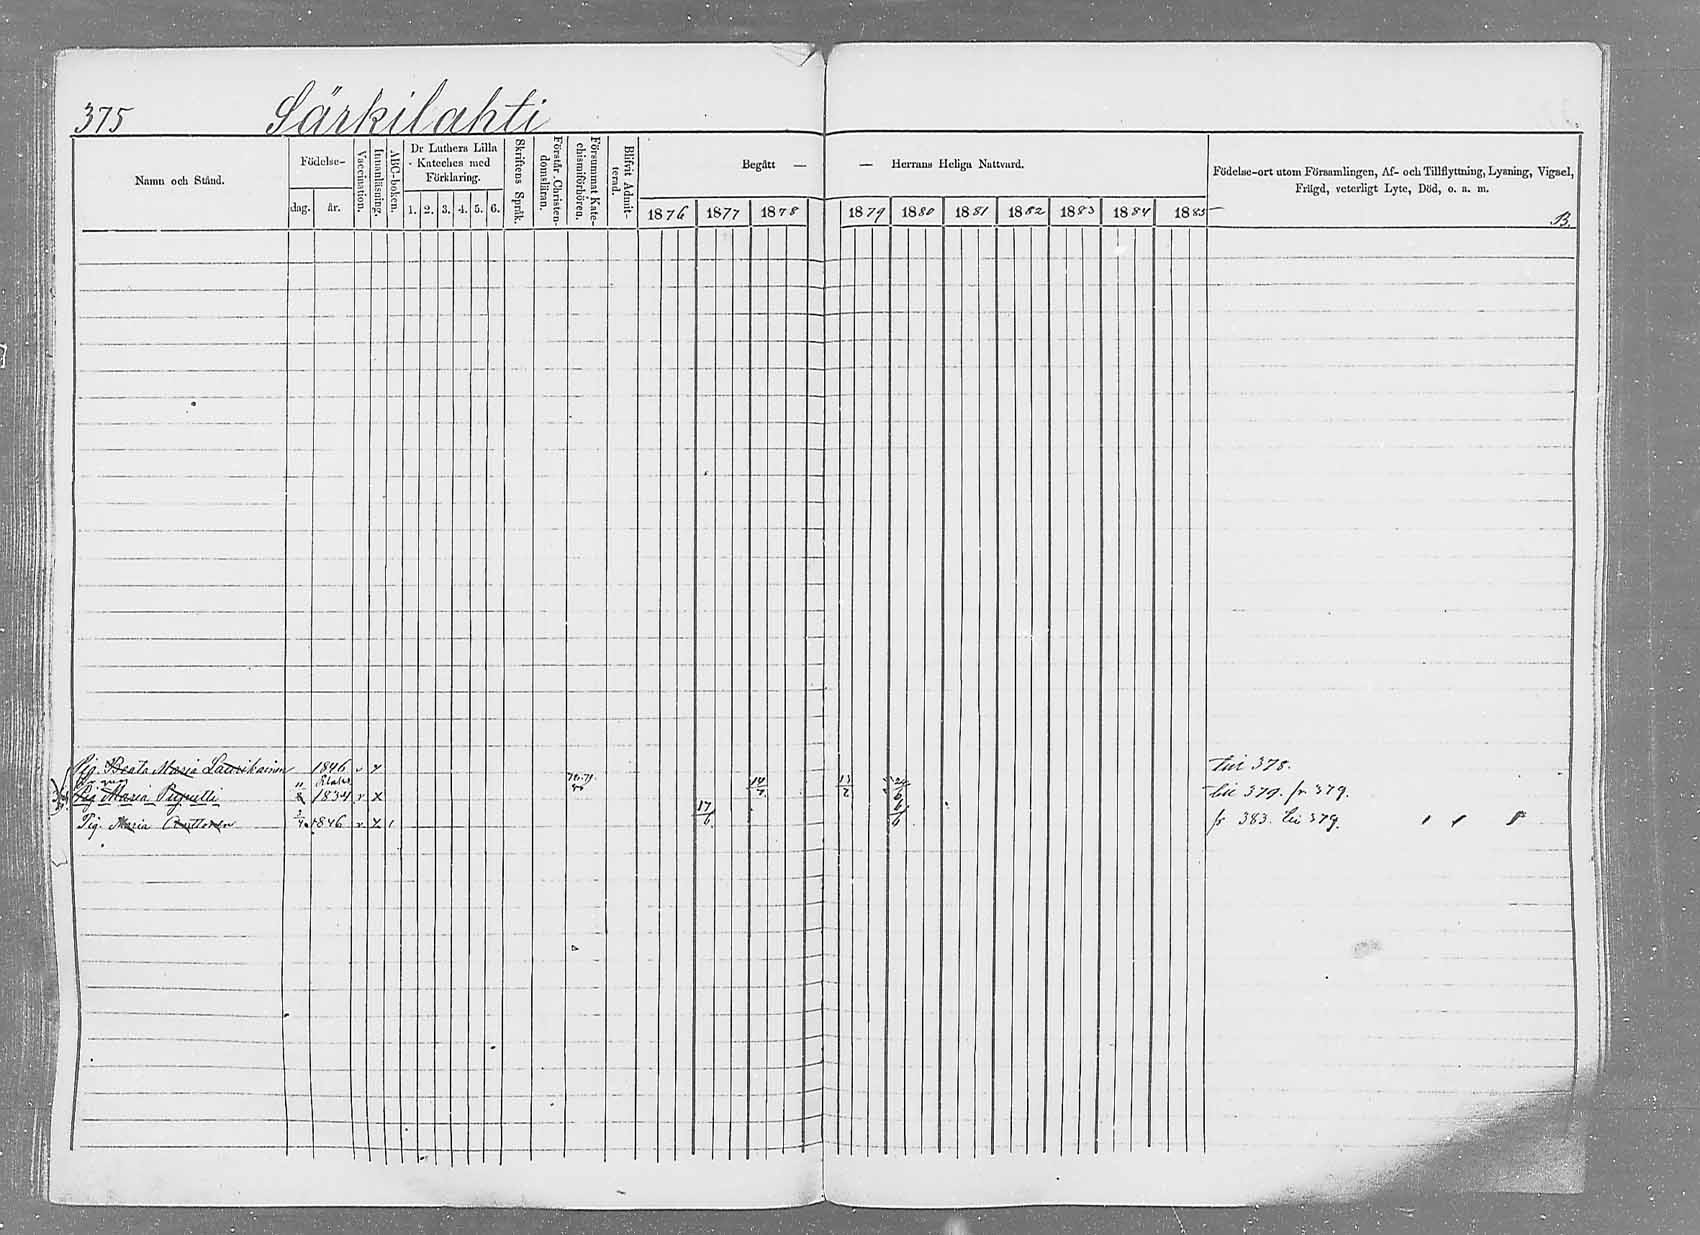 375 Särkilahti
Namn och Stånd.
Födelse-
dag. år.
Vaccination.
Innanläsning.
ABC-boken.
Dr Luthers Lilla
Kateches med
Förklaring.
1. 2. 3. 4. 5. 6.
Skriftens Språk.
Förstår Christen-
domsläran.
Försummat Kate-
chismiförhören.
Blifvit Admit-
terad.
Begått — — Herrans Heliga Nattvard.
1876 1877 1878 1879 1880 1881 1882 1883 1884 1885
Födelse-ort utom Församlingen, Af- och Tillflyttning, Lysning, Vigsel,
Frägd, veterligt Lyte, Död, o. a. m.
B.
Pig. Beata Maria Laurikainen 1846 v x till 378.
Pig Maria 1834 v x 14/7 13/2 379. fr 379.
Pig. Maria 1846 v x 1 17/6 6/6 fr 383. till 379.